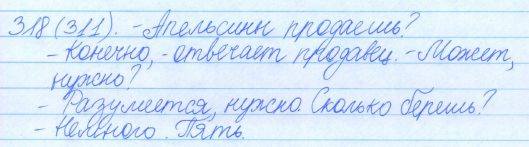 318 (311). -Апельсины продаешь?
- Конечно, - отвечает продавец. - Может,
нужно?
- Разумеется, нужно. Сколько берешь?
- Немного. Пять.